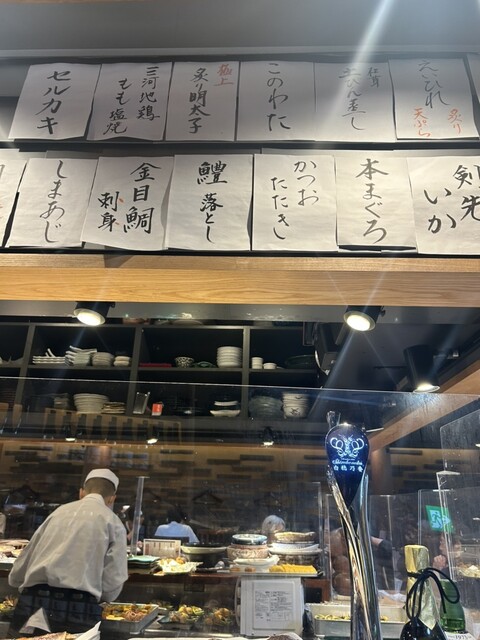 えいひれ
炙り
天ぷら
土びん蒸し
このわた
極上
炙り明太子
三河地鶏
もも塩焼
セルカキ
剣先
いか
本まぐろ
かつお
たたき
鱧 落とし
金目鯛
刺身
しまあじ
白穂乃香